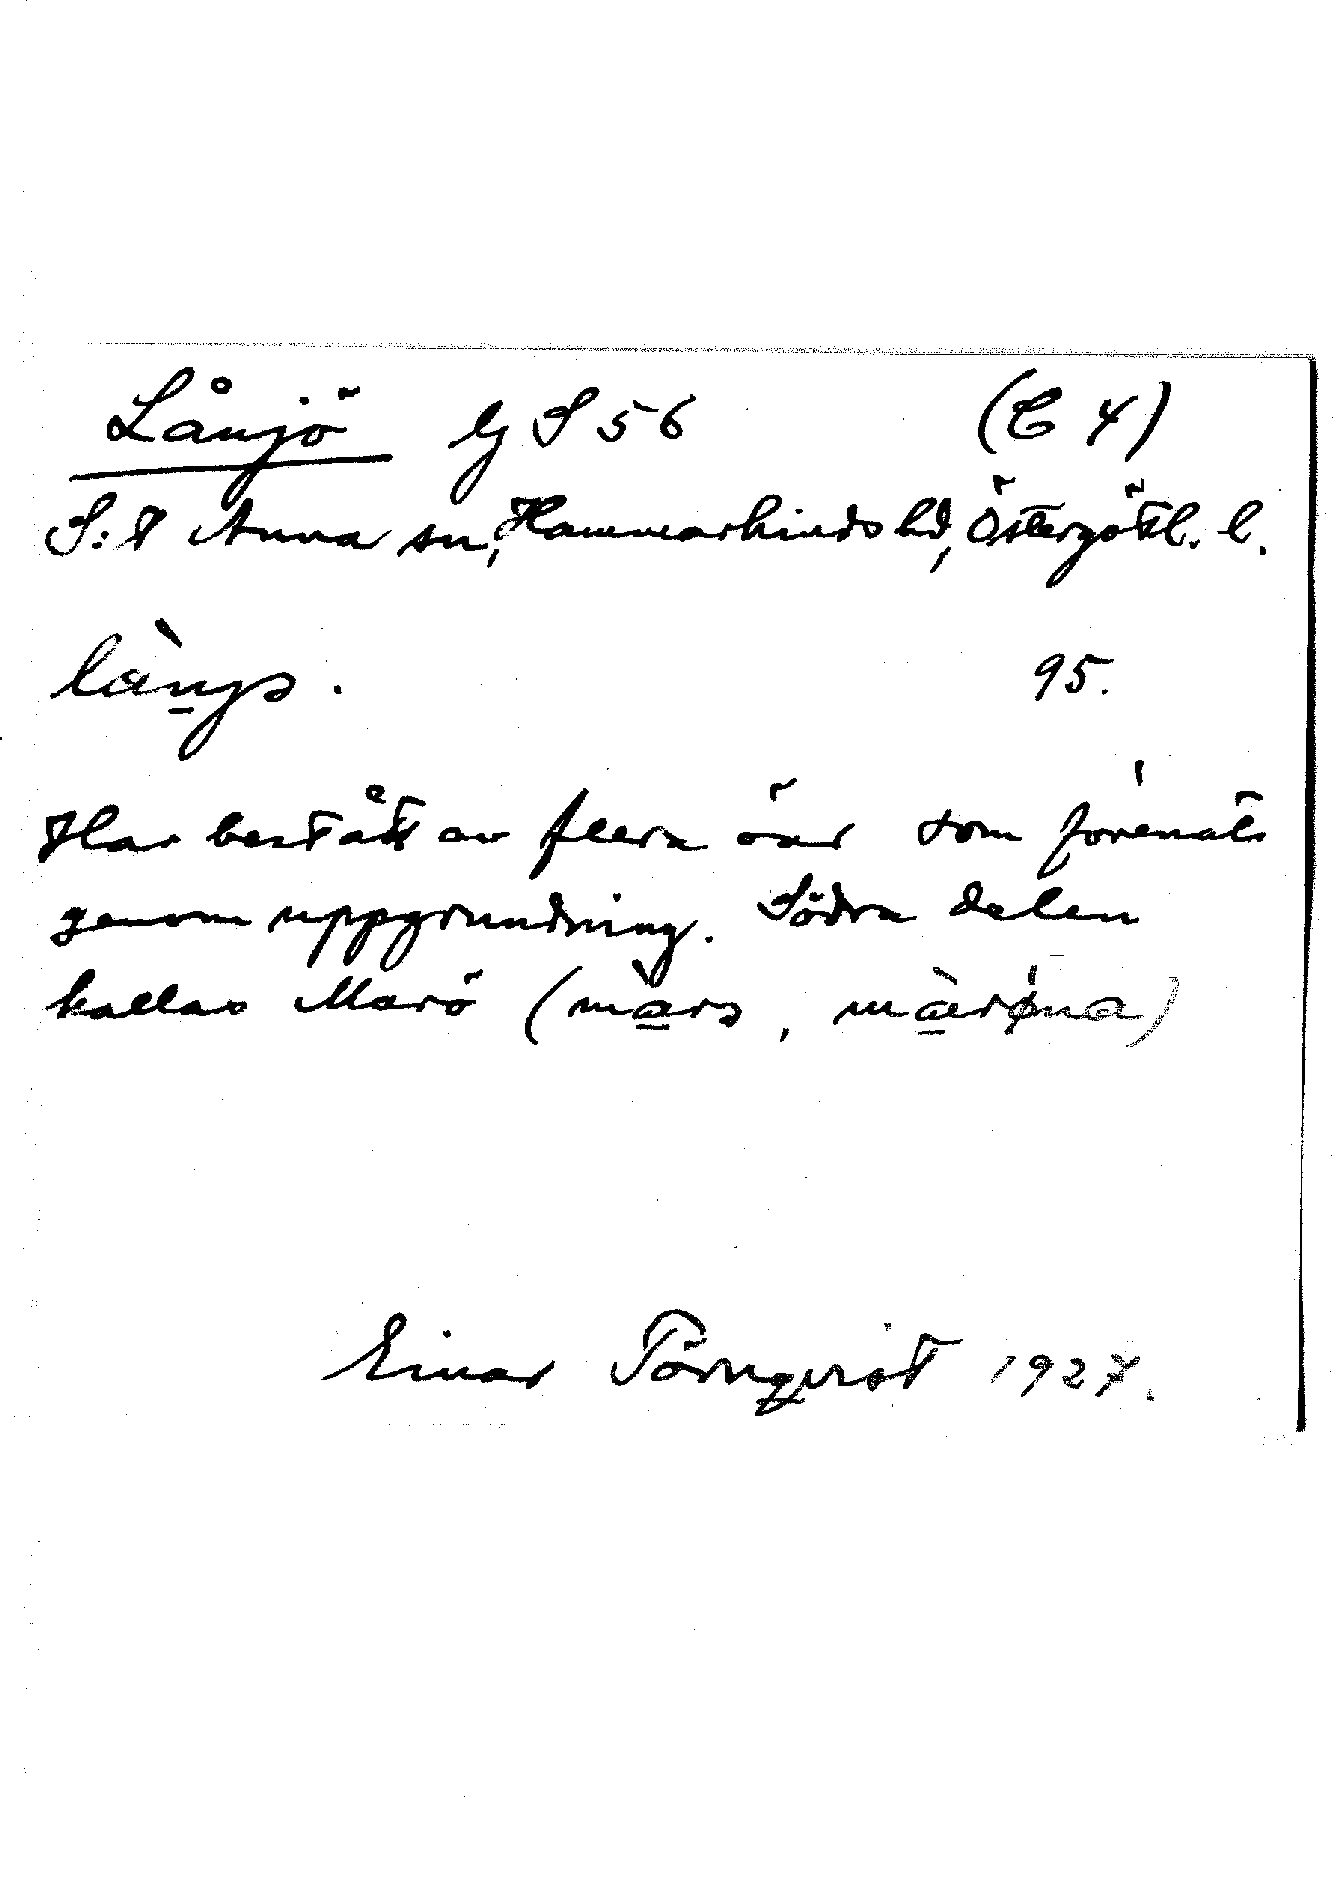 Lånjö Gj S 56 (C 4)
S:t Anna sn, Hammarkinds hd, Östergötl. l.
95.
Har bestått av flera öar som förenats
genom uppgrundning. Södra delen
kallas Marö
Einar Törnqvist 1927.